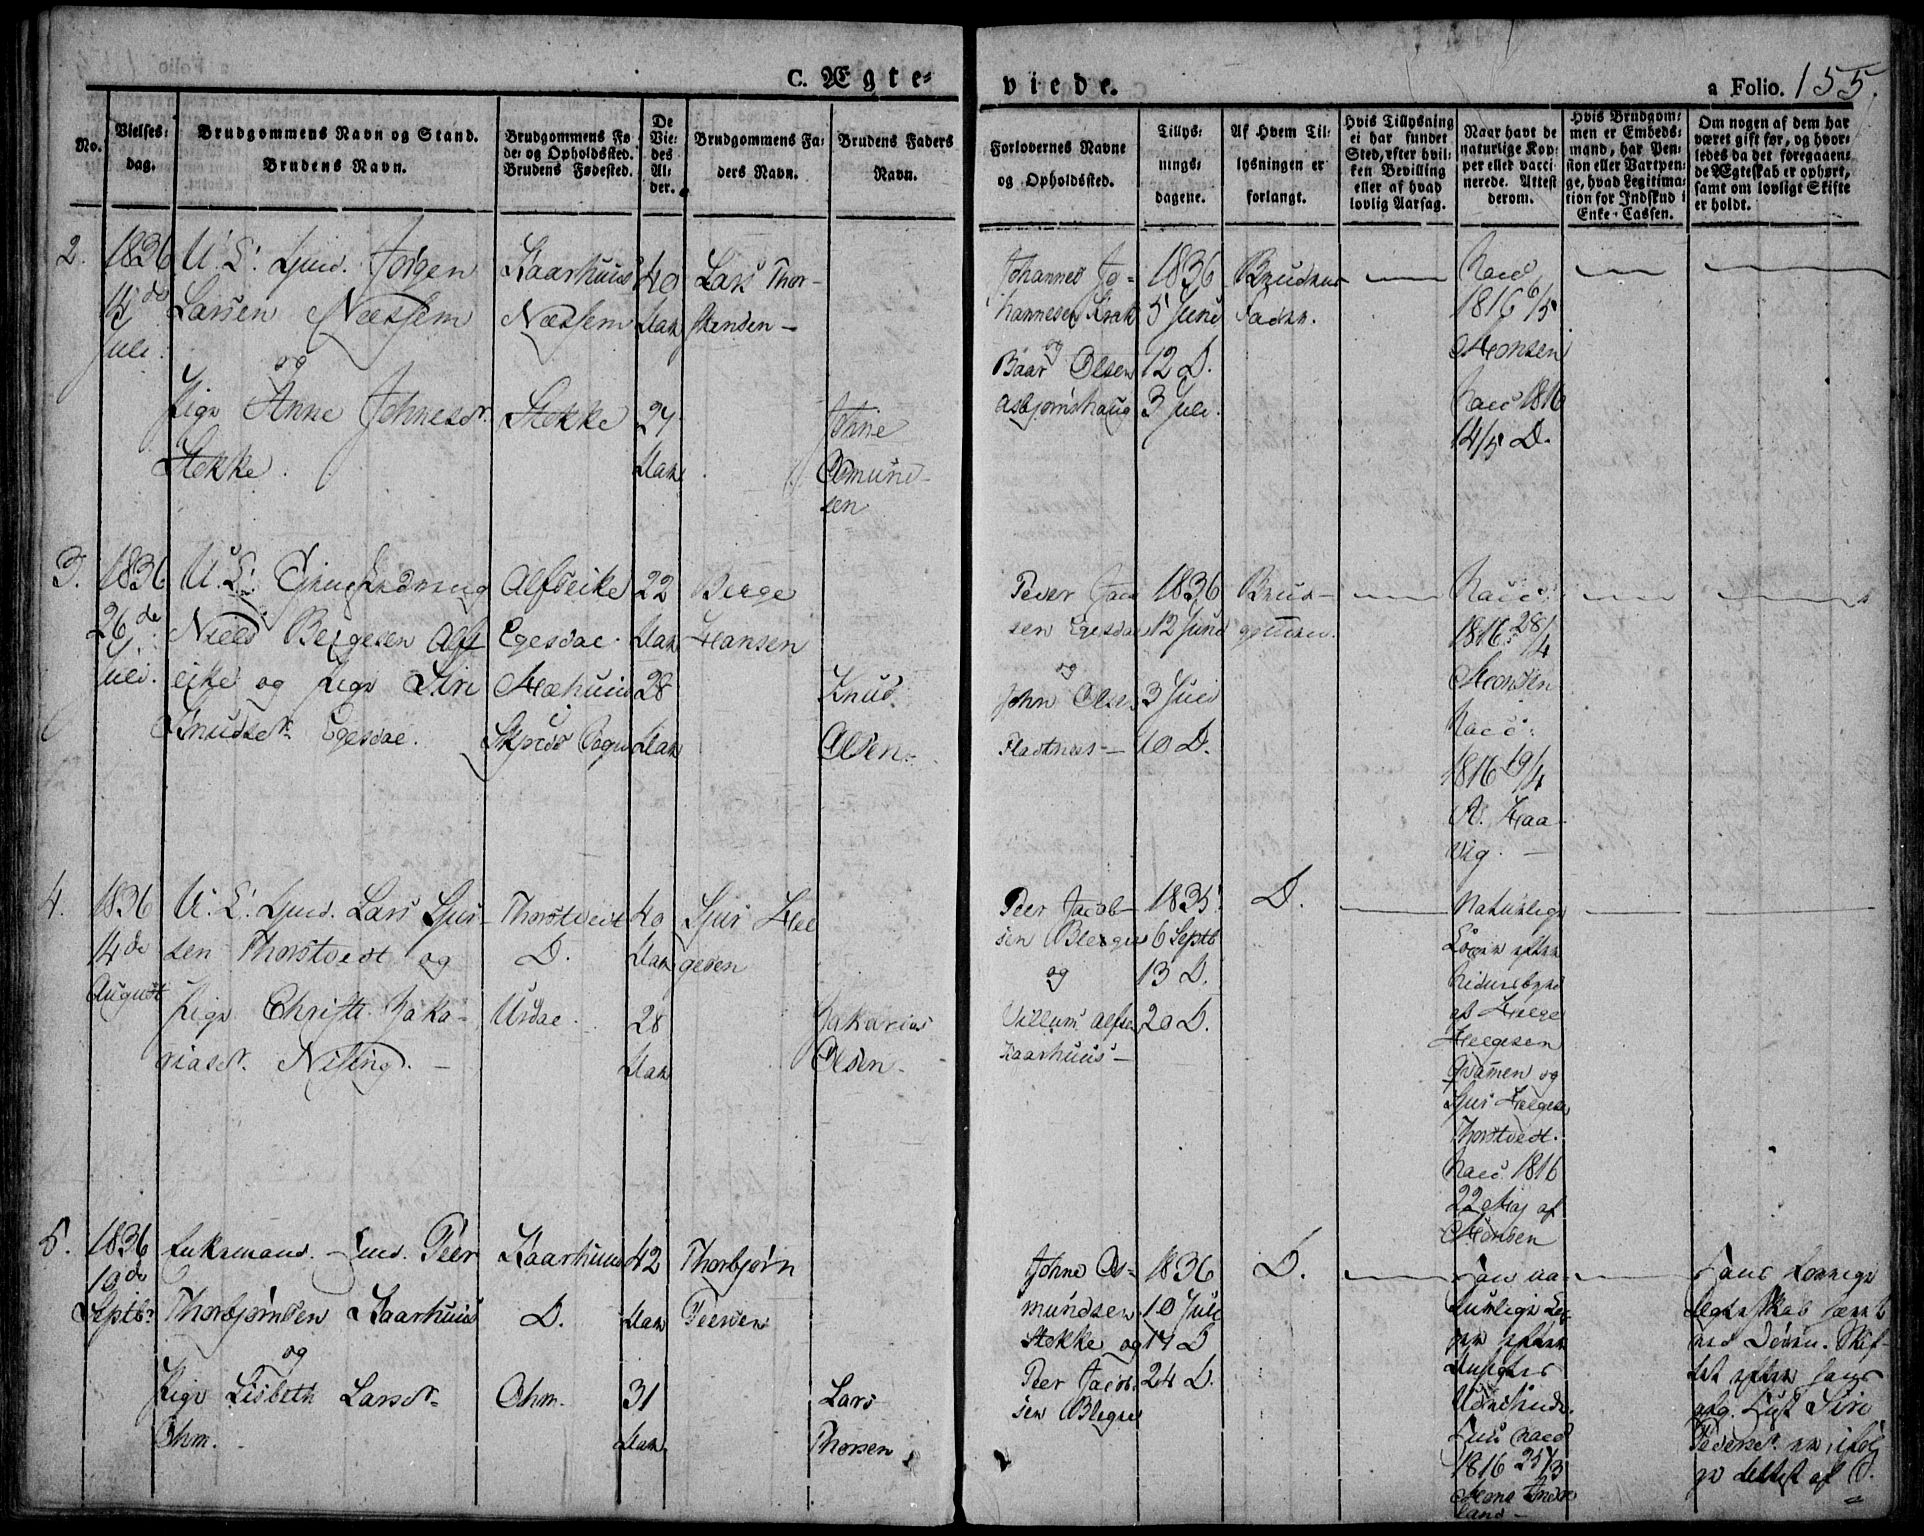 C. Ægte-
viede.
a Folio. 155.
No.
Vielses-
dag.
Brudgommens Navn og Stand.
Brudens Navn.
Brudgommens Fø-
de- og Opholdssted.
Brudens Fødested.
De
Vie-
des
Al-
der.
Brudgommens Fa-
ders Navn.
Brudens Faders
Navn.
Forlovernes Navne
og Opholdssted.
Tillys-
nings-
dagene.
Af Hvem Til-
lysningen er
forlangt.
Hvis Tillysning
ei har fundet
Sted, efter hvil-
ken Bevilling
eller af hvad
lovlig Aarsag.
Naar havt de
naturlige Kop-
per eller vacci-
nerede. Attest
derom.
Hvis Brudgom-
men er Embeds-
mand, har Pen-
sion eller Vartpen-
ge, hvad Legitima-
tion for Indskud i
Enke-Cassen.
Om nogen af dem har
været gift før, og hvor-
ledes da det foregaaen-
de Ægteskab er ophørt,
samt om lovligt Skifte
er holdt.
2.
1836
14de
Juli.
U. C. Gmd. Jørgen
Larsen Næssem
og
Pige Anne Johnesdr.
Stokke.
Kaarhuus
Næssem
Stokke
40
Aar
27
Aar
Lars Thor-
stensen -
Johne
Osmund-
sen
Johannes Jo-
hannesen Krak
og
Baar Olsen
Asbjørnshaug
1836
5 Juni
12 D.
3 Juli.
Brudens
Fader.
Vacc
1816 6/5
Monsen
Vacc 1816
14/5 D.
3.
1836
26de
Juli.
U. C.
Niels Bergesen Alf-
eike og Pige Siri
Knudsdr Egesdal.
Alfseike
Egesdal.
Skjold Sogn
22
Aar
28
Aar
Berge
Hansen
Knud
Olsen.
Peder Jacob-
sen Egesdal
og
John Olsen
Fladtnes -
1836
12 Juni
3 Juli
10 D.
Brud-
gommen.
Vacc:
1816 28/4
Monsen
Vacc:
1816 19/4
A. Haa-
vig. -
4.
1836
14de
August
U. C. Gmd. Lars Sjur-
sen Thorstvedt og
Pige Christi Zaka-
riasdr. Nilling. -
Thorstvedt
D.
Urdal.
40
Aar
28
Aar
Sjur Hel
gesen
Zakarias
Olsen -
Peer Jacob-
sen Blegnes
og
Villum Alfsen
Kaarhuus -
1835.
6 Septb
13 D.
20 D.
D.
Naturlige
af Helge
Helgesen
Qvamen og
Sjur Helgesen
Thorstvedt.
Vacc. 1816
22 Maj af
Monsen
5.
1836
10de
Septbr
Enkemand. Gmd. Peer
Thorbjørnsen Kaarhuus
og
Pige Lisbeth Larsdr.
Ohm. -
Kaarhuus
D.
Ohm.
42
Aar
31
Aar
Thorbjørn
Peersen
Lars
Thorsen
Johne Os-
mundsen
Stokke og
Peer Jacob-
sen Blegnes
1836
10 Juli
17 D
24 D.
D.
Han na-
turlige
efter
1816 25/3
Hans forrige
Ægteskab hævet
ved Døden. Skif-
tet efter hans
afg. Siri
Pedersdr.